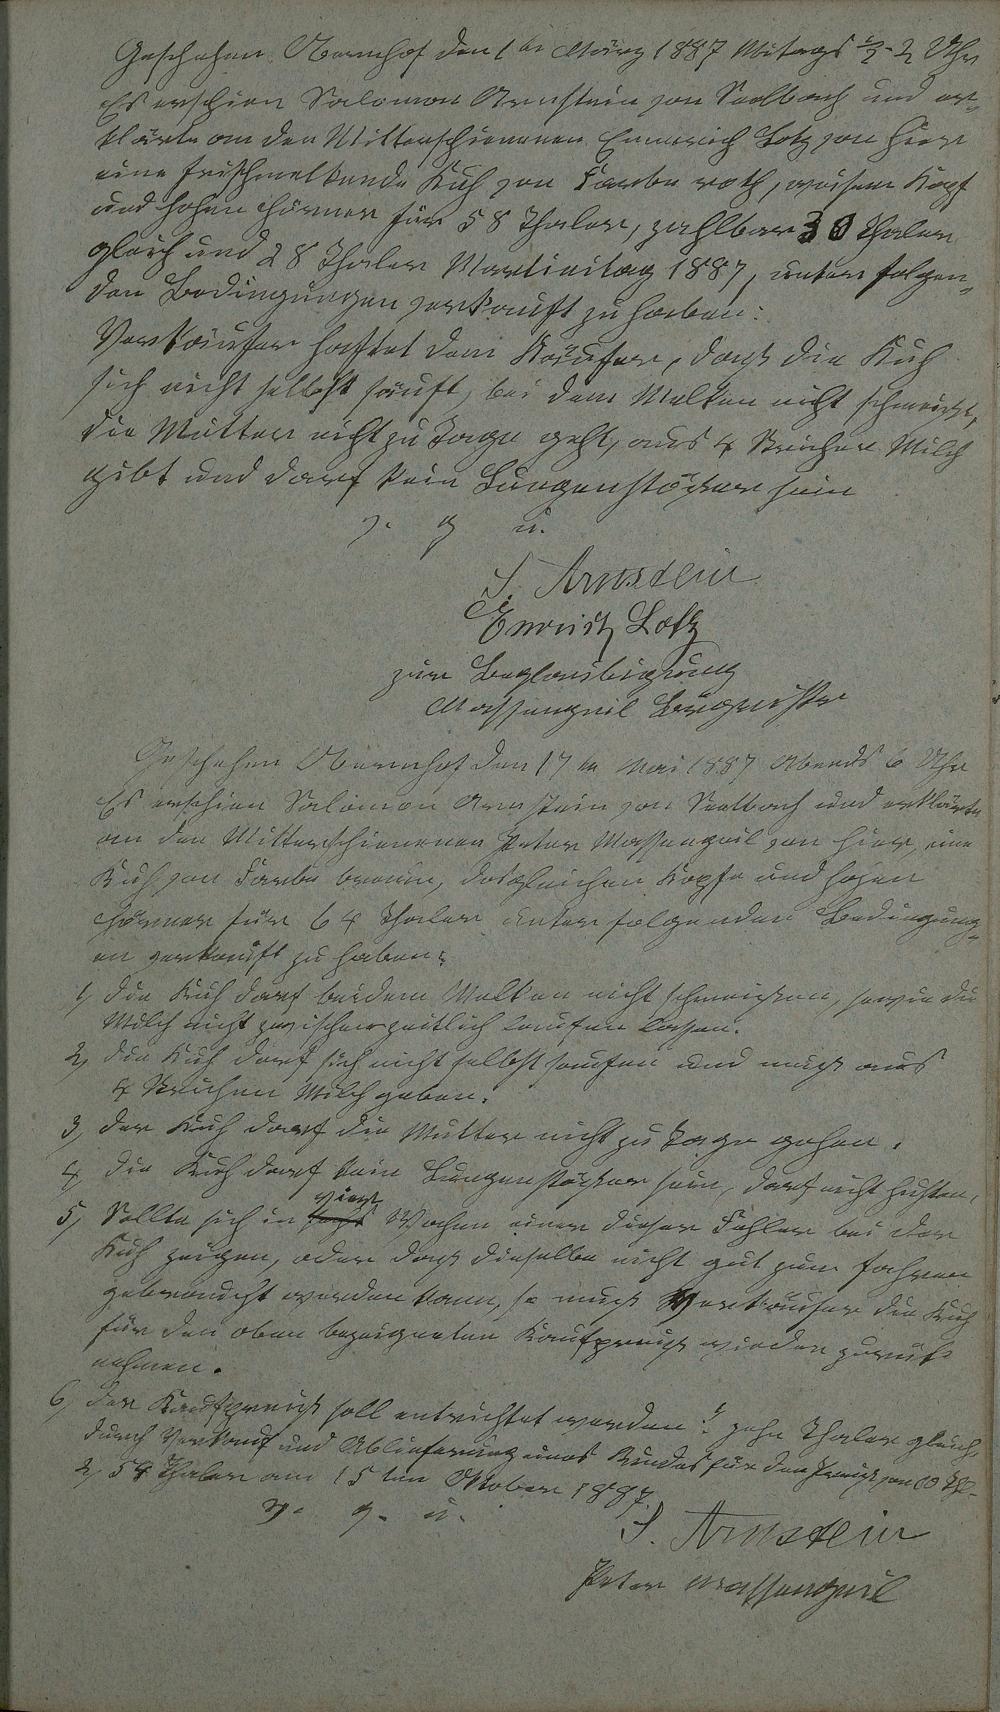 Geschehen Obernhof den 1ten März 1887 Mitags ½ 2 Uhr
Es erschien Salomon Arnstein von Seelbach und er=
klärte an den Miterschienenen Emmerich Lotz von hier
eine frischmelkende Kuh von Farbe roth, weisem Kopf
und hohen Hörner für 58 Thaler, zahlbar 30 Thaler
gleich und 28 Thaler Martinitag 1887, unter folgen=
den Bedingungen verkauft zu haben:
Verkäufer haftet dem Käufer, dass die Kuh
sich nicht selbst säuft, bei dem Melken nicht schmeißt,
die Mutter nicht zu Tage geht, aus 4 Strichen Milch
gibt und darf kein Lungenstößer sein
v. g u.
S. Arnstein
Emrich Lotz
zur Beglaubigung
Massengeil Bürgmstr
Geschehen Obernhof den 17 tn Mai 1887 Abends 6 Uhr
Es erschien Salomon Arnstein von Seelbach und erklärte
an den Mitterschienenen Peter Massengeil von hier, eine
Kuh von Farbe braun, desgleichen Kopfe und hohen
Hörner für 64 Thaler unter folgenden Bedingung=
en verkauft zu haben:
1, die Kuh darf bei dem Melken nicht schmeißen, sowie die
Milch nicht zwischenzeitlich laufen lassen.
2, die Kuh darf sich nicht selbst saufen und muß aus
4 Strichen Milch geben.
3, der Kuh darf die Mutter nicht zu Tage gehen.
4, die Kuh darf kein Lungenstößer sein, darf nicht husten,
vier
5, Sollte sich in sechs Wochen einer dieser Fehler bei der
Kuh zeigen, oder daß dieselbe nicht gut zum fahren
gebraucht werden kann, so muß Verkäufer die Kuh
für den oben bezeigneten Kaufpreiß wieder zurück
nehmen.
6, der Kaufpreiß soll entrichtet werden: 1, zehn Thaler gleich,
durch Verkauf und Ablieferung eines Rindes für den Preiß von 10 Thl.
2, 54 Thaler am 15 ten Oktober 1887.
v. g. u.
S. Arnstein
Peter Massengeil